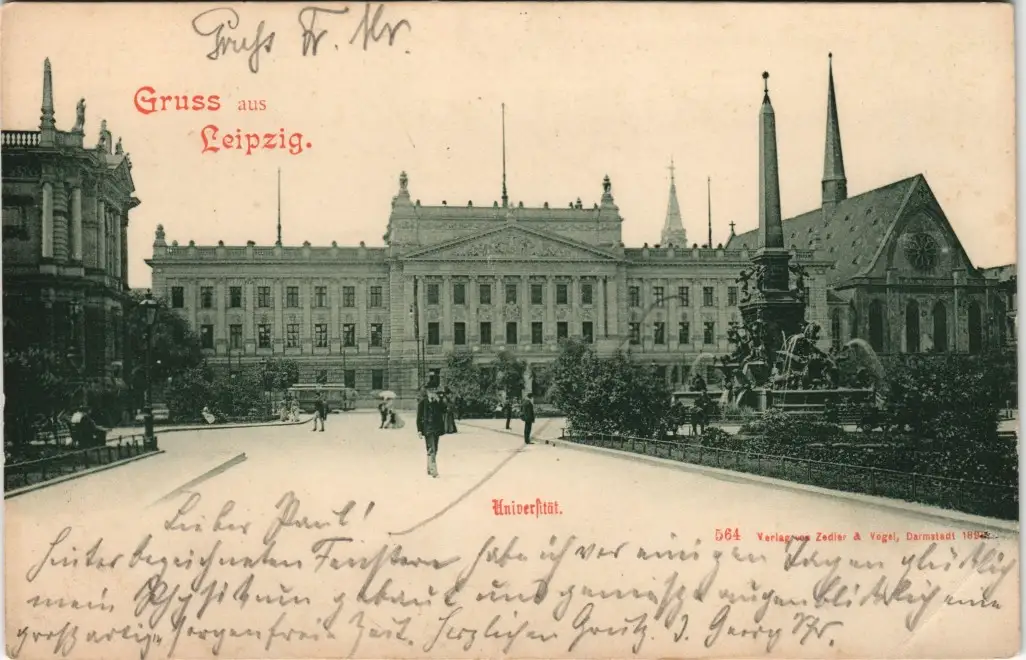 Gruss Fr. Nr.
Gruss aus
Leipzig.
Universität.
564 Verlag von Zedler & Vogel, Darmstadt 189
Lieber Paul!
Hinter bezeichneten Fenstern habe ich vor einigen Tagen glücklich
mein Physikum gebaut und genieße augenblicklich eine
großartige sorgenfreie Zeit. Herzlichen Gruß. Georg